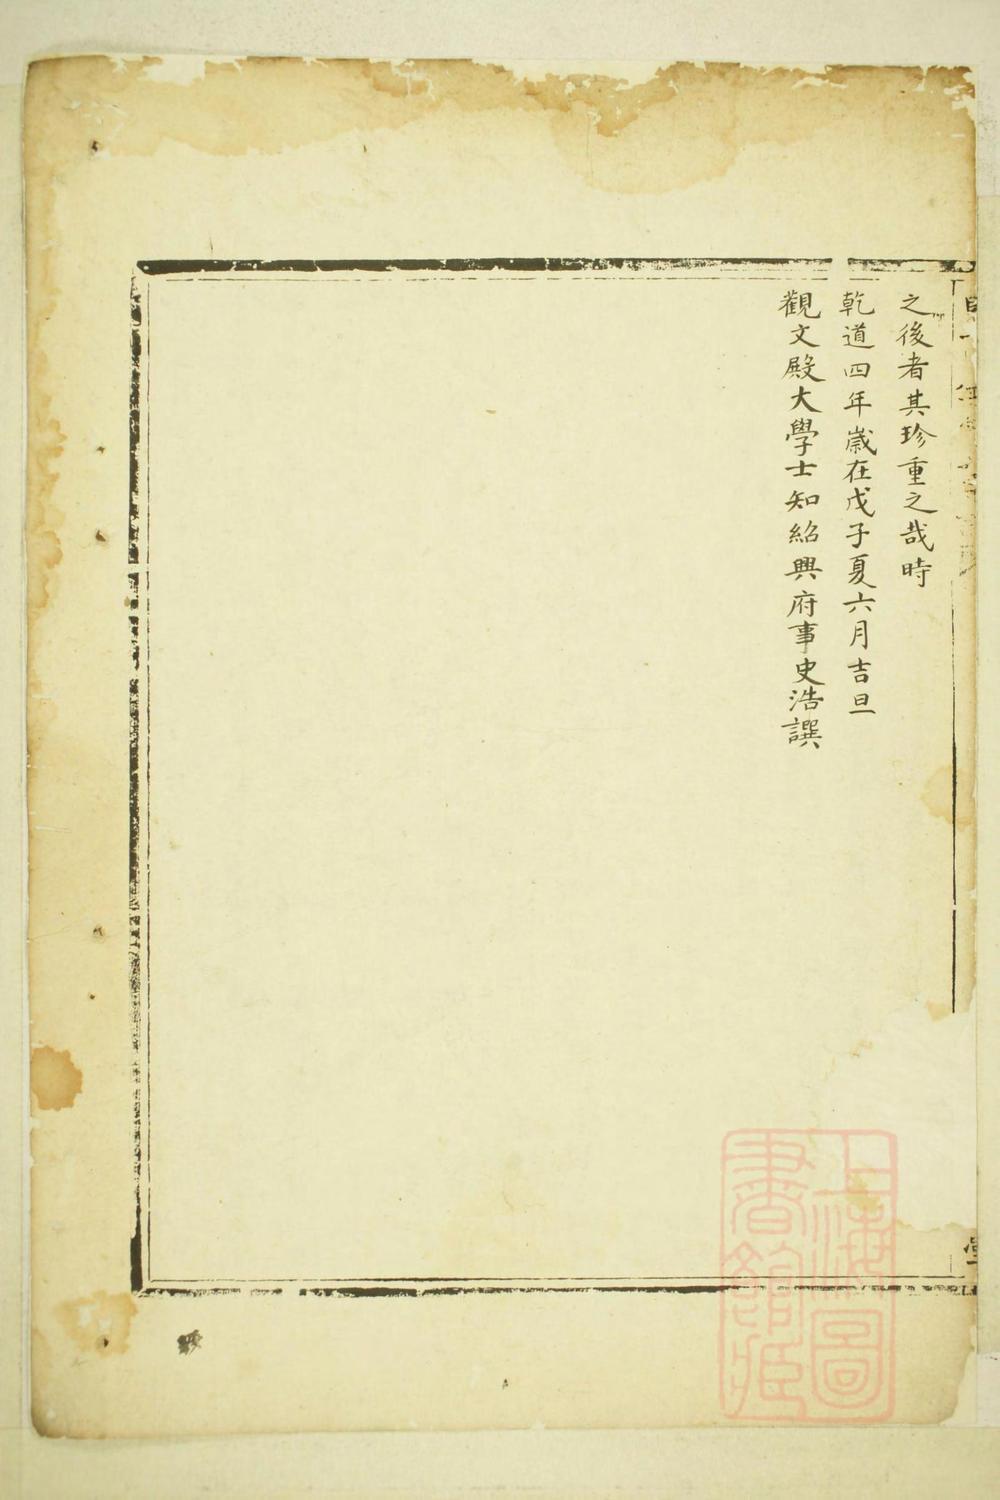 之後者其珍重之哉時
乾道四年歲在戊子夏六月吉旦
觀文殿大學士知紹興府事史浩譔
上海圖
書館藏